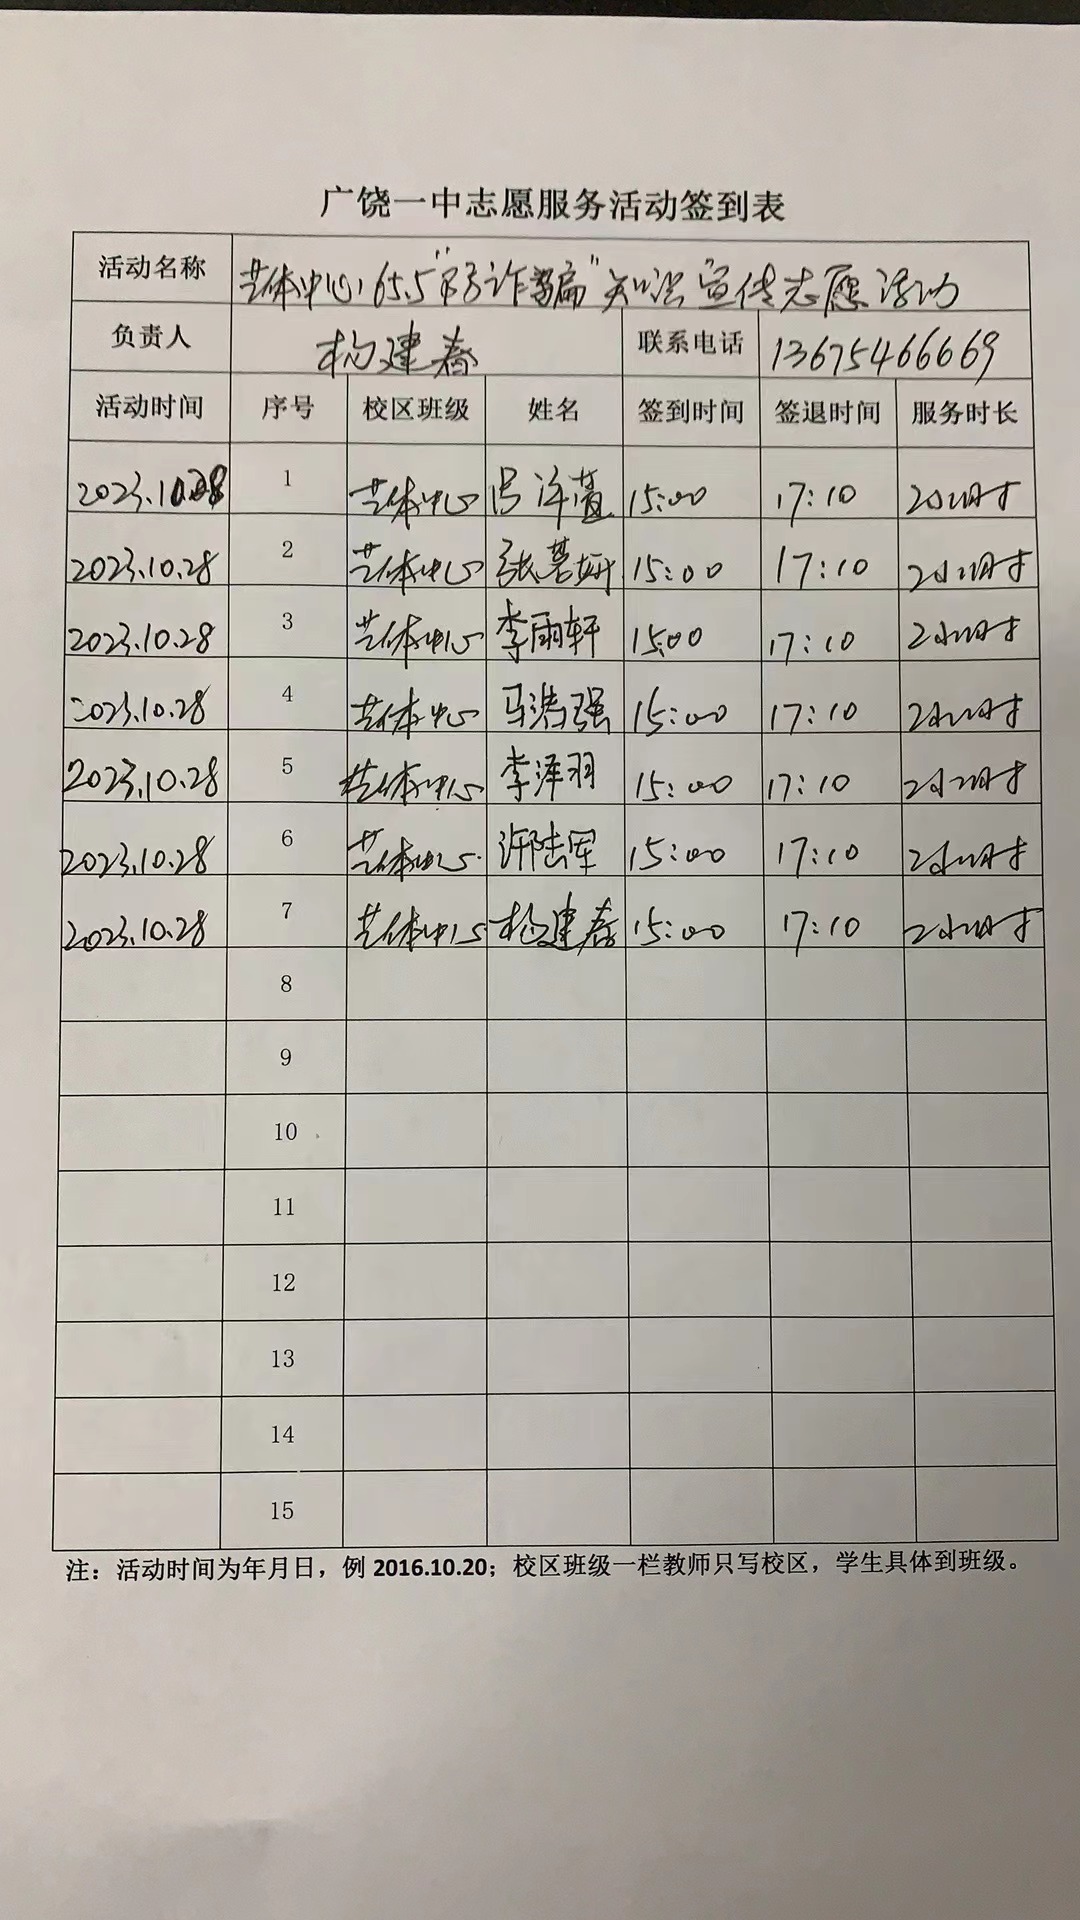 广饶一中志愿服务活动签到表
活动名称 艺体中心 "防诈骗"知识宣传志愿活动
负责人 杨建春 联系电话 13675466669
活动时间 序号 校区班级 姓名 签到时间 签退时间 服务时长
2023.10.28 1 艺体中心 15:00 17:10 2小时
2023.10.28 2 艺体中心 张慕妍 15:00 17:10 2小时
2023.10.28 3 艺体中心 李雨轩 15:00 17:10 2小时
2023.10.28 4 艺体中心 马浩强 15:00 17:10 2小时
2023.10.28 5 艺体中心 李泽羽 15:00 17:10 2小时
2023.10.28 6 艺体中心 许陆军 15:00 17:10 2小时
2023.10.28 7 艺体中心 杨建春 15:00 17:10 2小时
8
9
10
11
12
13
14
15
注：活动时间为年月日，例 2016.10.20；校区班级一栏教师只写校区，学生具体到班级。